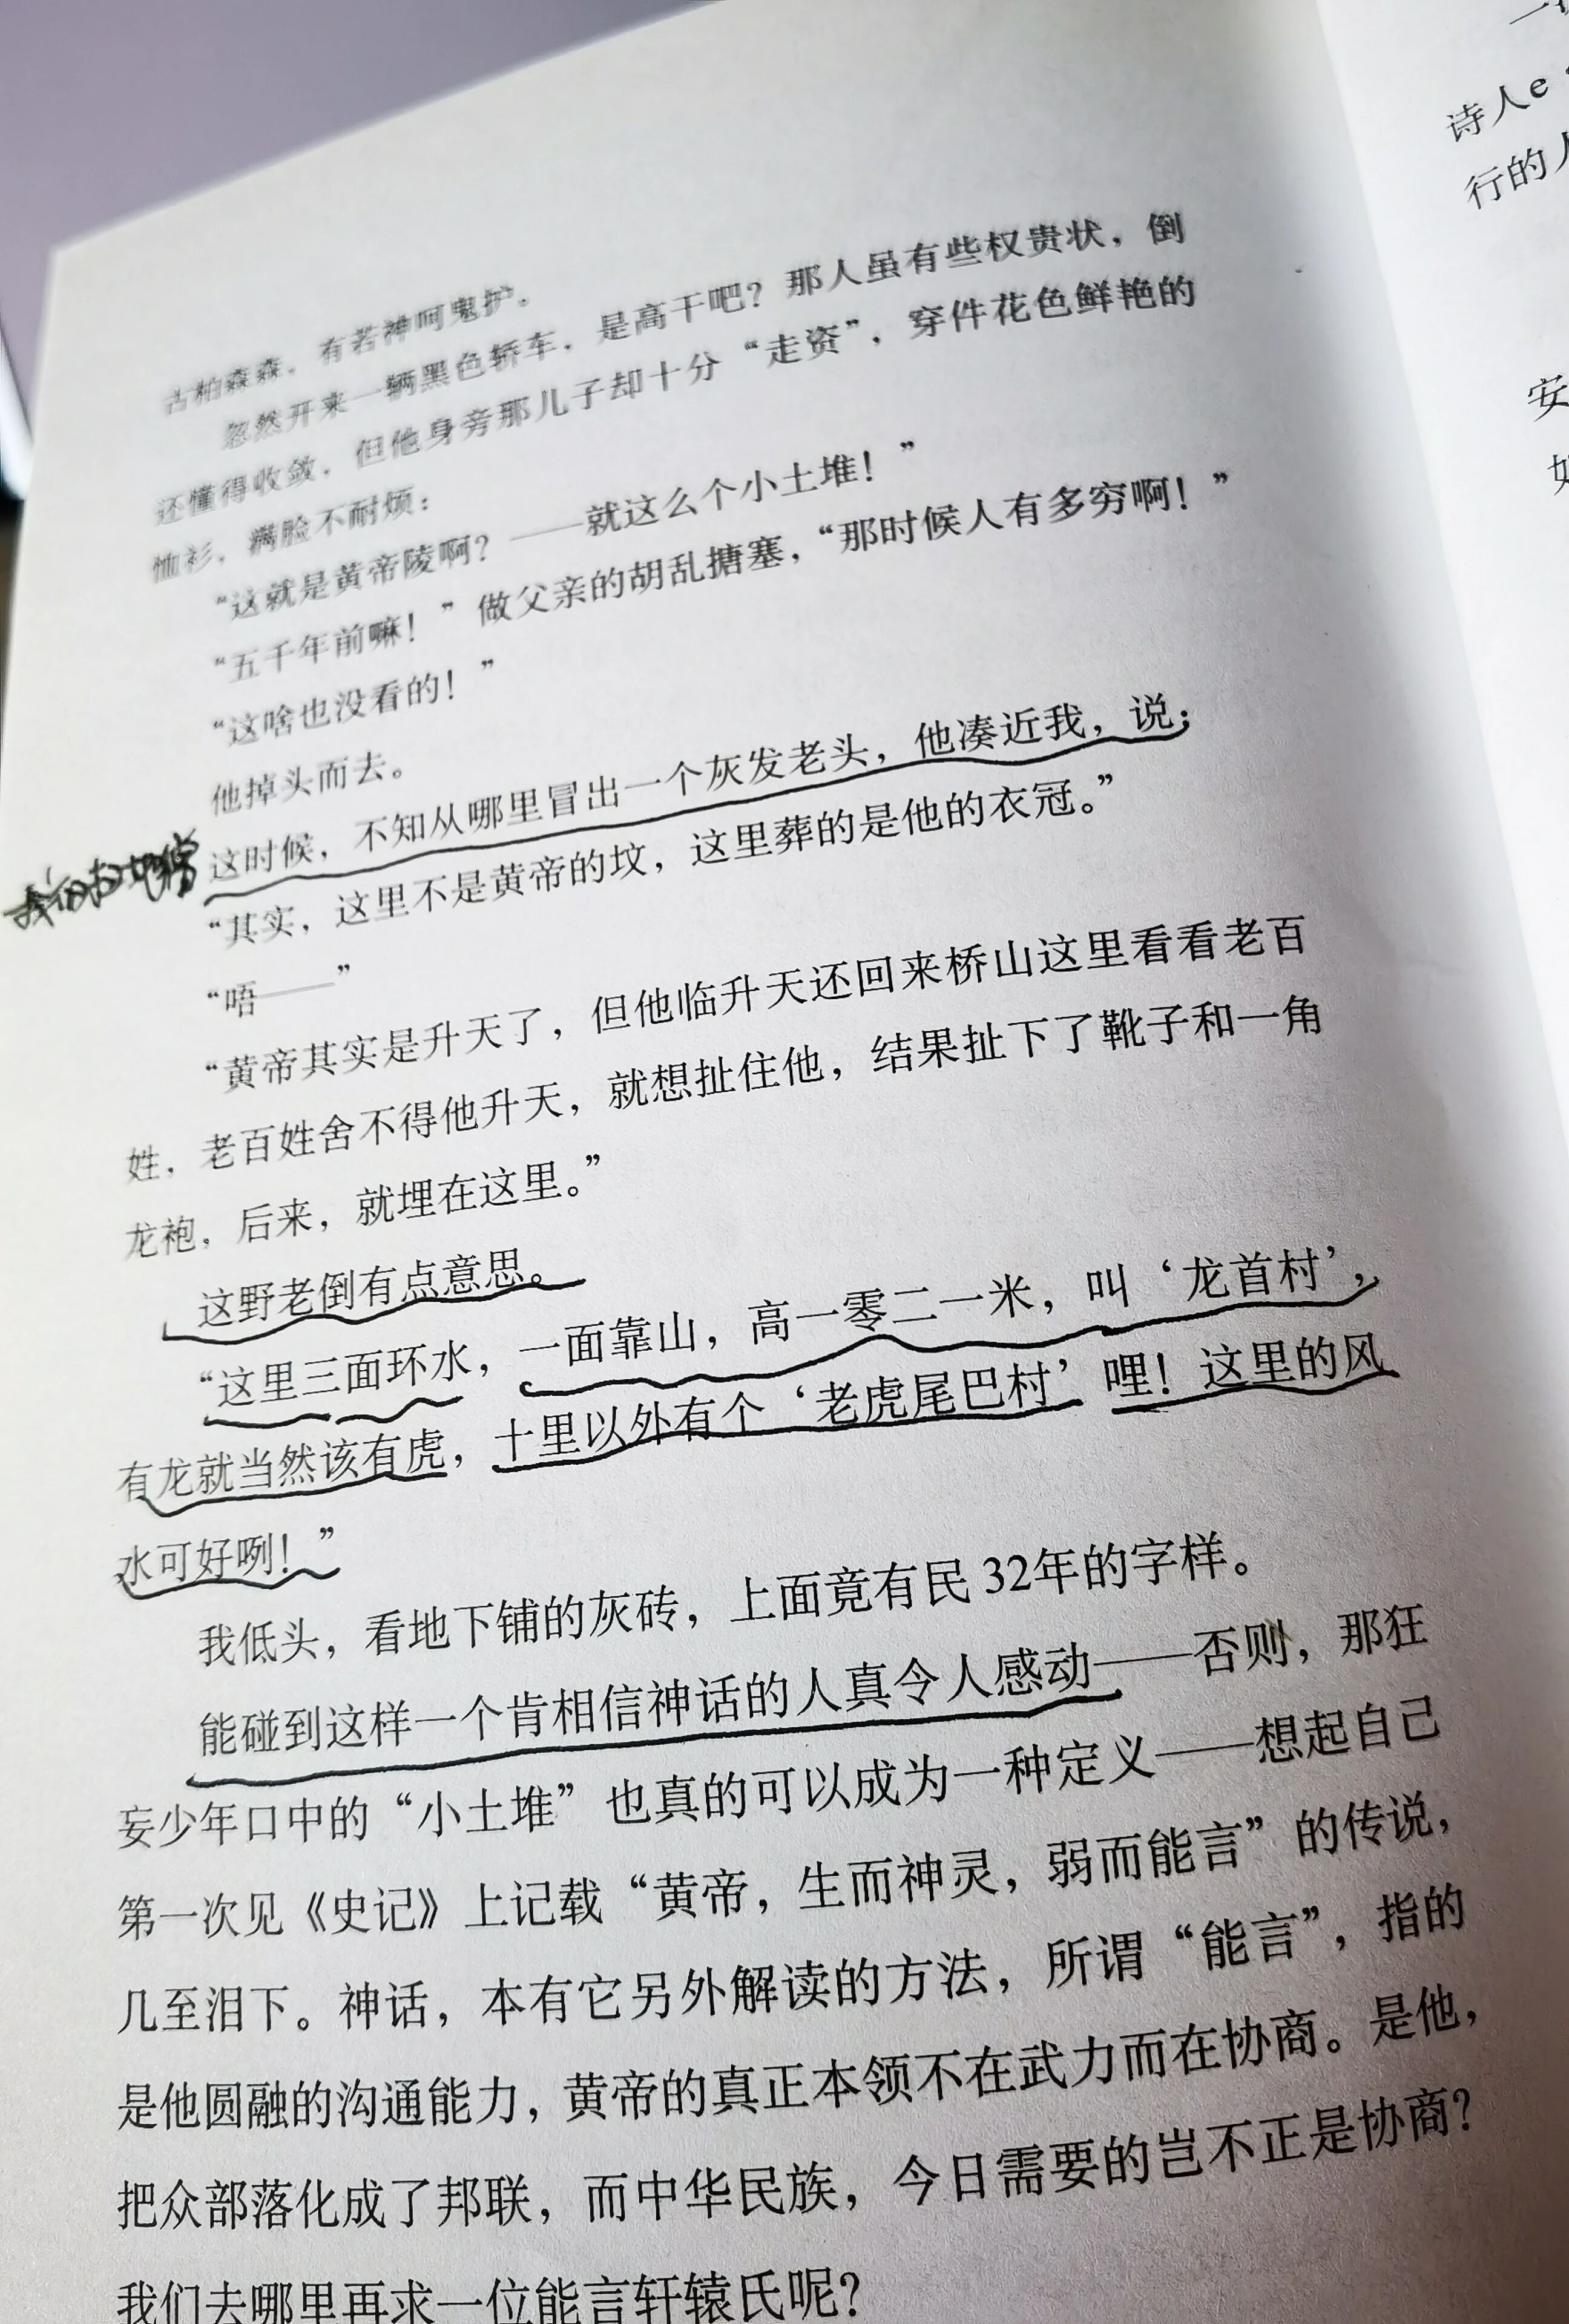 古柏森森，有若神呵鬼护。
忽然开来一辆黑色轿车，是高干吧？那人虽有些权贵状，倒
还懂得收敛，但他身旁那儿子却十分“走资”，穿件花色鲜艳的
恤衫，满脸不耐烦：
“这就是黄帝陵啊？——就这么个小土堆！”
“五千年前嘛！”做父亲的胡乱搪塞，“那时候人有多穷啊！”
“这啥也没看的！”
他掉头而去。
这时候，不知从哪里冒出一个灰发老头，他凑近我，说：
“其实，这里不是黄帝的坟，这里葬的是他的衣冠。”
“唔——”
“黄帝其实是升天了，但他临升天还回来桥山这里看看老百
姓，老百姓舍不得他升天，就想扯住他，结果扯下了靴子和一角
龙袍，后来，就埋在这里。”
这野老倒有点意思。
“这里三面环水，一面靠山，高一零二一米，叫‘龙首村’，
有龙就当然该有虎，十里以外有个‘老虎尾巴村’哩！这里的风
水可好咧！”
我低头，看地下铺的灰砖，上面竟有民32年的字样。
能碰到这样一个肯相信神话的人真令人感动——否则，那狂
妄少年口中的“小土堆”也真的可以成为一种定义——想起自己
第一次见《史记》上记载“黄帝，生而神灵，弱而能言”的传说，
几至泪下。神话，本有它另外解读的方法，所谓“能言”，指的
是他圆融的沟通能力，黄帝的真正本领不在武力而在协商。是他，
把众部落化成了邦联，而中华民族，今日需要的岂不正是协商？
我们去哪里再求一位能言轩辕氏呢？
诗人e
行的人
安